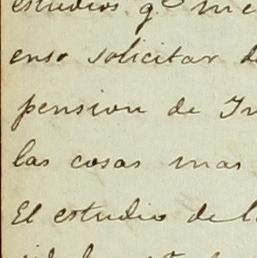 estudios q.e me
enso solicitar d
pension de In
las cosas mas
El estudio de l